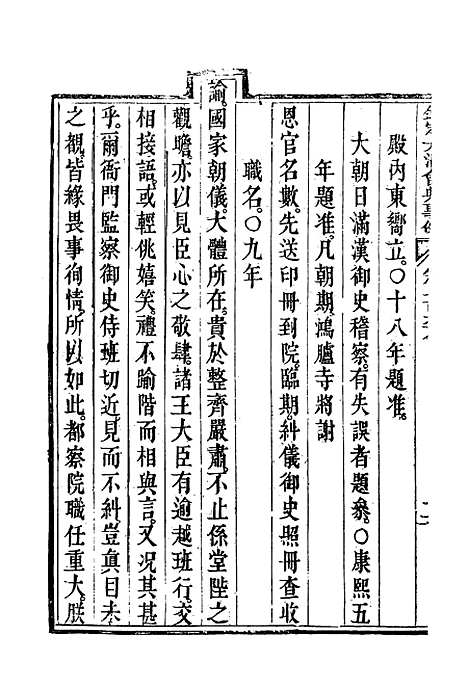 殿內東嚮立。○十八年題准。
大朝日滿漢御史稽察。有失誤者題參。○康熙五
年題准。凡朝期。鴻臚寺將謝
恩官名數。先送印冊到院。臨期。糾儀御史照冊查收
職名。○九年
諭。國家朝儀。大體所在。貴於整齊嚴肅。不止係堂陛之
觀瞻。亦以見臣心之敬肆。諸王大臣有逾越班行。交
相接語。或輕佻嬉笑。禮不踰階而相與言。又況其甚
乎。爾衙門監察御史侍班切近。見而不糾。豈真目未
之覩。皆緣畏事徇情。所以如此。都察院職任重大。朕